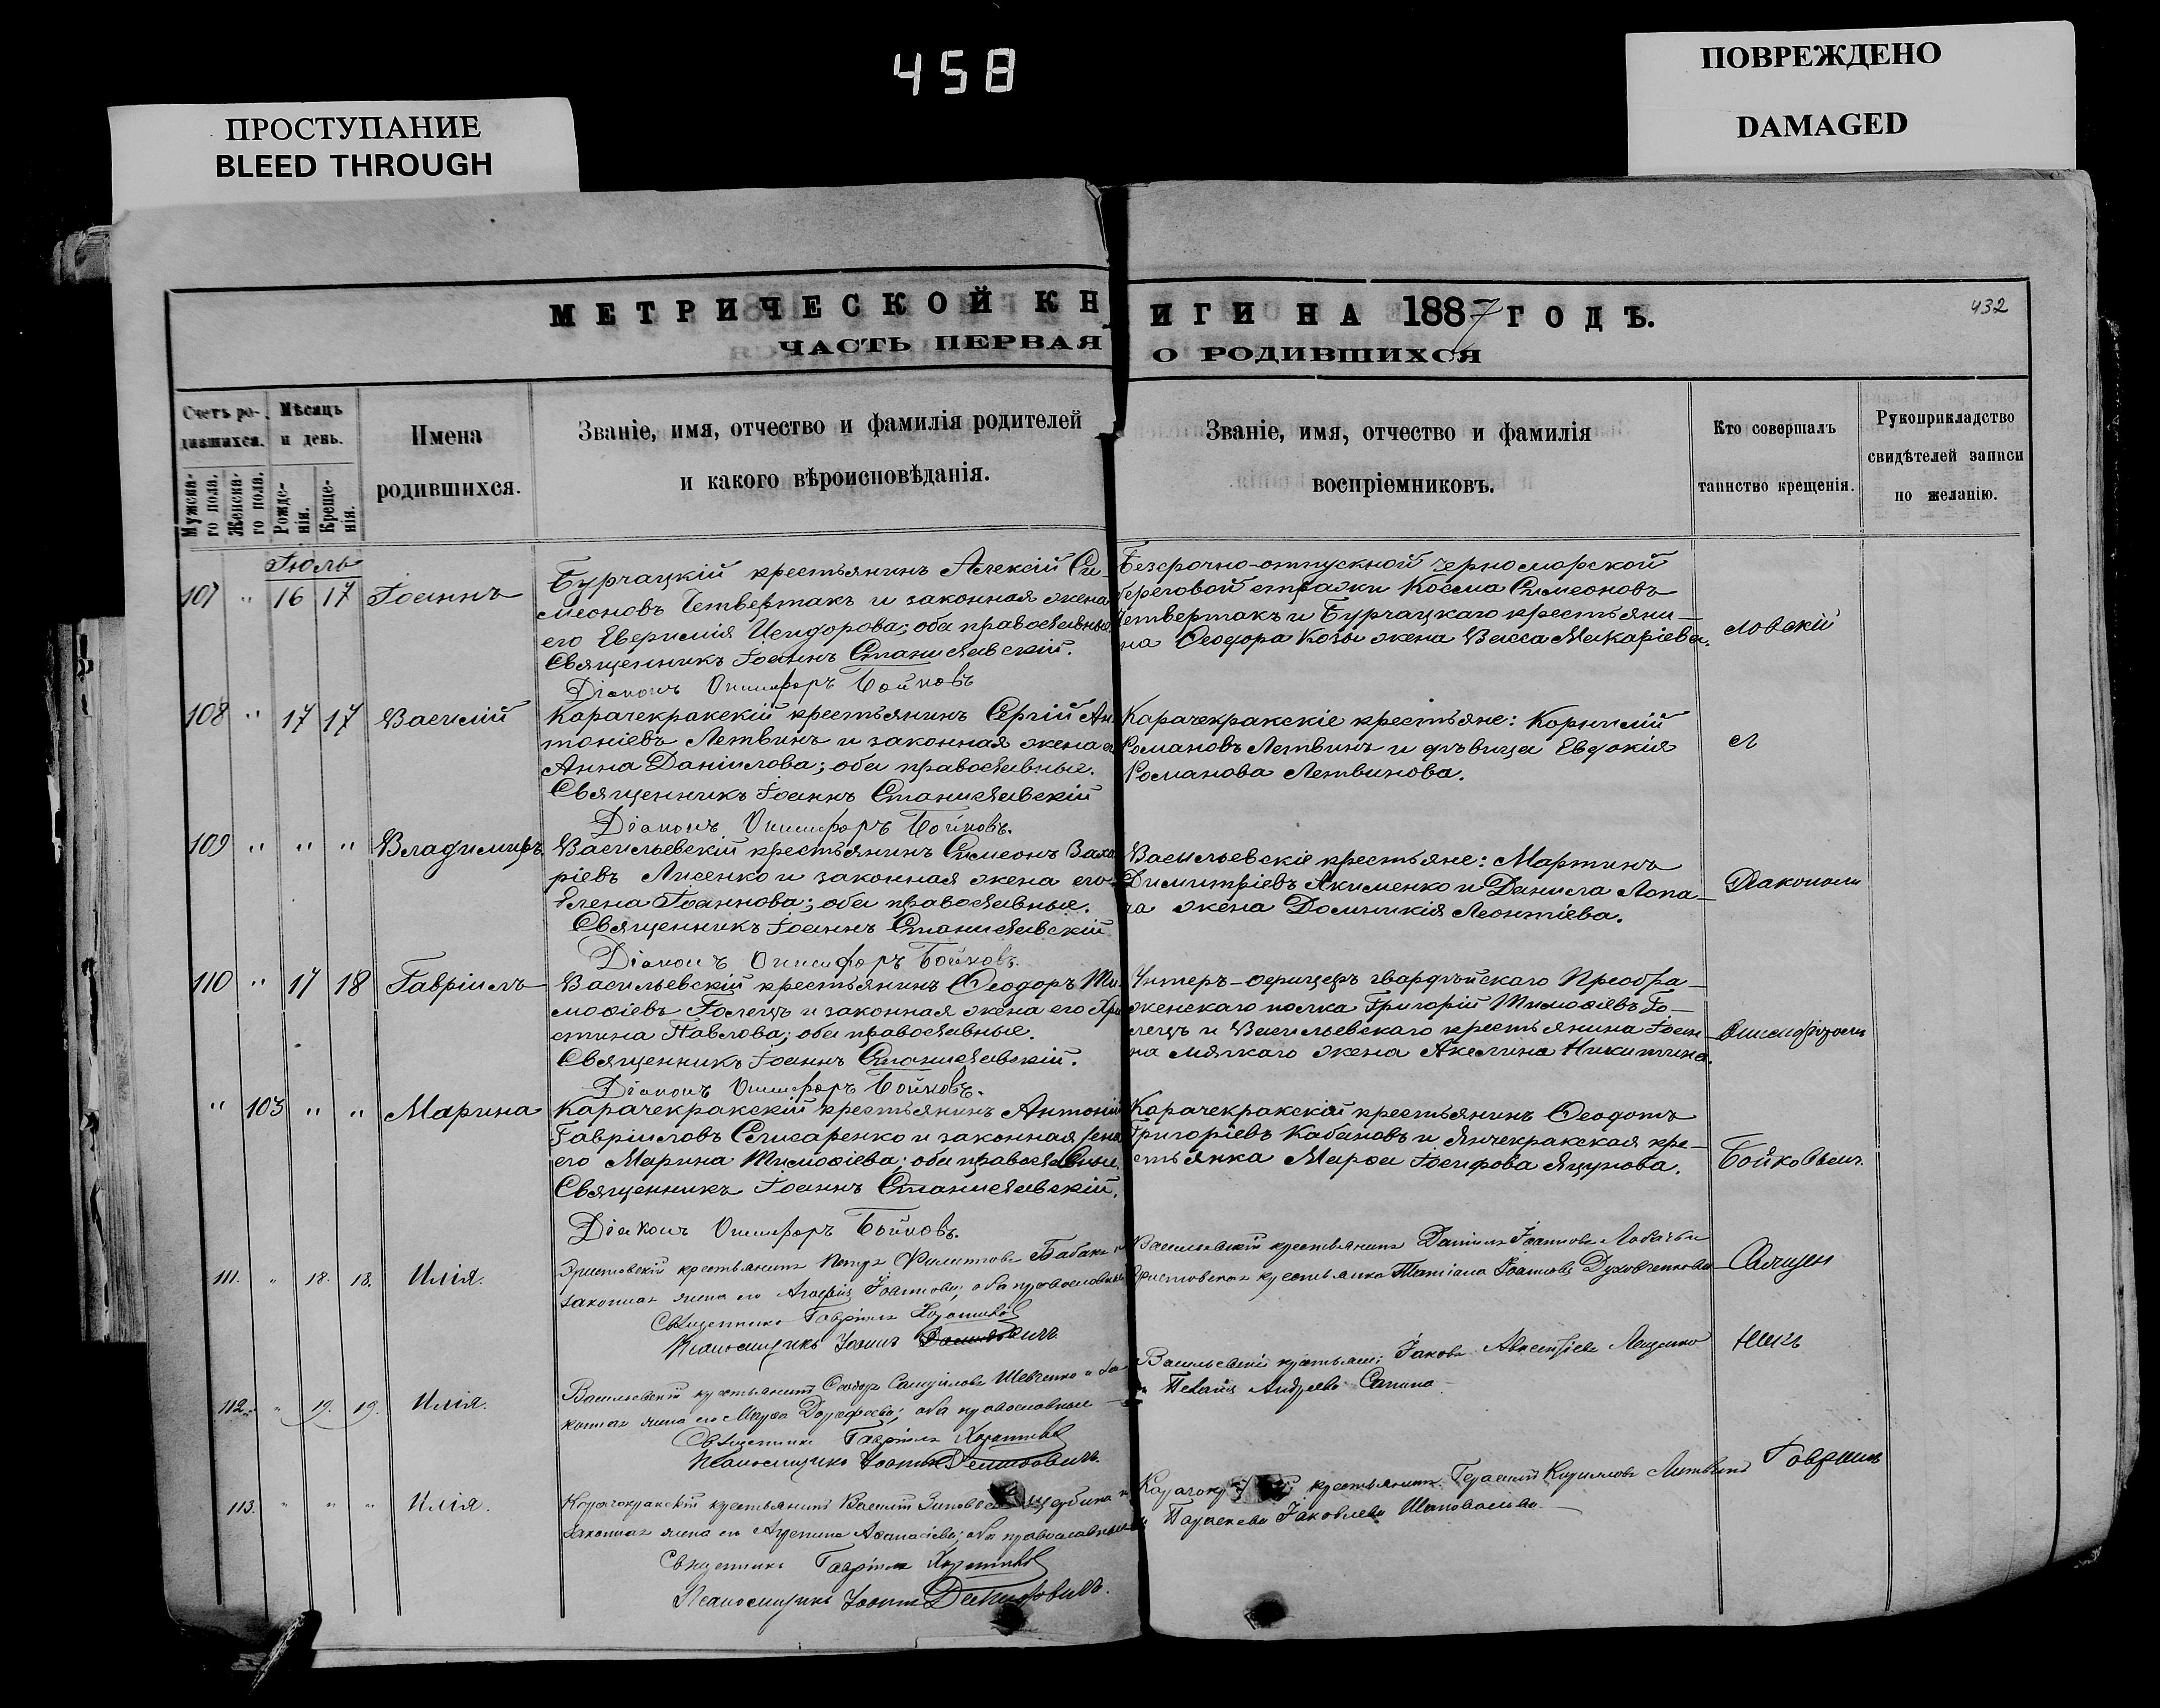 458
ПРОСТУПАНИЕ
BLEED THROUGH
ПОВРЕЖДЕНО
DAMAGED
МЕТРИЧЕСКОЙ КНИГИ НА 1887 ГОДЪ.
432
ЧАСТЬ ПЕРВАЯ О РОДИВШИХСЯ
Счетъ ро-
дившихся.
Мужска-
го пола.
Женска-
го пола.
Мѣсяцъ
и день.
Рожде-
нія.
Креще-
нія.
Имена
родившихся.
Званіе, имя, отчество и фамилія родителей
и какого вѣроисповѣданія.
Званіе, имя, отчество и фамилія
воспріемниковъ.
Кто совершалъ
таинство крещенія.
Рукоприкладство
свидѣтелей записи
по желанію.
Іюль
107 " 16 17 Іоаннъ
Бурчацкій крестьянинъ Алексій Си-
меоновъ Четвертакъ и законная жена
его Евфимія Исидорова; оба православные.
Священникъ Іоаннъ Станиславскій.
Діаконъ Онисифоръ Бойковъ
Безсрочно-отпускной черноморской
береговой стражи Косма Симеоновъ
Четвертакъ и Бурчацкаго крестьяни-
на Ѳеодора Козы жена Васса Макаріева.
108 " 17 17 Василій
Карачекракскій крестьянинъ Сергій Ан-
тоніевъ Летвинъ и законная жена
Анна Даніилова; оба православные.
Священникъ Іоаннъ Станиславскій
Діаконъ Онисифоръ Бойковъ.
Карачекракскіе крестьяне: Корнилій
Романовъ Летвинъ и дѣвица Евдокія
Романова Летвинова.
109 " " " Владимиръ
Васильевскій крестьянинъ Симеонъ Заха-
ріевъ Лисенко и законная жена его
Елена Іоаннова; оба православные.
Священникъ Іоаннъ Станиславскій
Діаконъ Онисифоръ Бойковъ.
Васильевскіе крестьяне: Мартинъ
Димитріевъ Акименко и Данила Лопа-
та жена Домникія Леонтіева.
Діакономъ
110 " 17 18 Гавріилъ
Васильевскій крестьянинъ Ѳеодоръ Ти-
моѳіевъ Голецъ и законная жена его Хри-
стина Павлова; оба православные.
Священникъ Іоаннъ Станиславскій.
Діаконъ Онисифоръ Бойковъ.
Унтеръ-офицеръ гвардѣйскаго Преобра-
женскаго полка Григорій Тимоѳіевъ Го-
лецъ и Васильевскаго крестьянина Іоан-
на Мягкаго жена Акелина Никитина.
Онисифоромъ
" 103 " " Марина
Карачекракскій крестьянинъ Антоній
Гавріиловъ Слисаренко и законная жена
его Марина Тимоѳіева; оба православные.
Священникъ Іоаннъ Станиславскій.
Діаконъ Онисифоръ Бойковъ.
Карачекракскій крестьянинъ Ѳеодотъ
Григоріевъ Кабановъ и Янчекракская кре-
стьянка Марѳа Іосифова Яцунова.
Бойковымъ.
111. " 18. 18. Илія.
крестьянинъ Петръ Филиповъ Бабакъ и
законная жена его Агафія Іоаннова; оба православные
Священникъ Гавріилъ
Псаломщикъ Іоаннъ
Васильевскій крестьянинъ Даніилъ Іоанновъ
крестьянка Татіана Іоаннова
Священ
112. " 19. 19. Илія.
Васильевскій крестьянинъ Ѳеодоръ Самуиловъ Шевченко и за-
конная жена его Марѳа Дорофеева; оба православные
Священникъ Гавріилъ
Псаломщикъ Іоаннъ Демидовичъ.
Васильевскіе крестьяне: Іаковъ
и Пелагія Андреева
никъ
113. " " " Илія.
Карачокракскій крестьянинъ Василій
законная жена его Агрипина Аѳанасіева; оба православные
Священникъ Гавріилъ
Псаломщикъ Іоаннъ Демидовичъ.
крестьянинъ Герасимъ Кириловъ Литвинъ
и Параскева Іаковлева Шаповалова
Гавріилъ